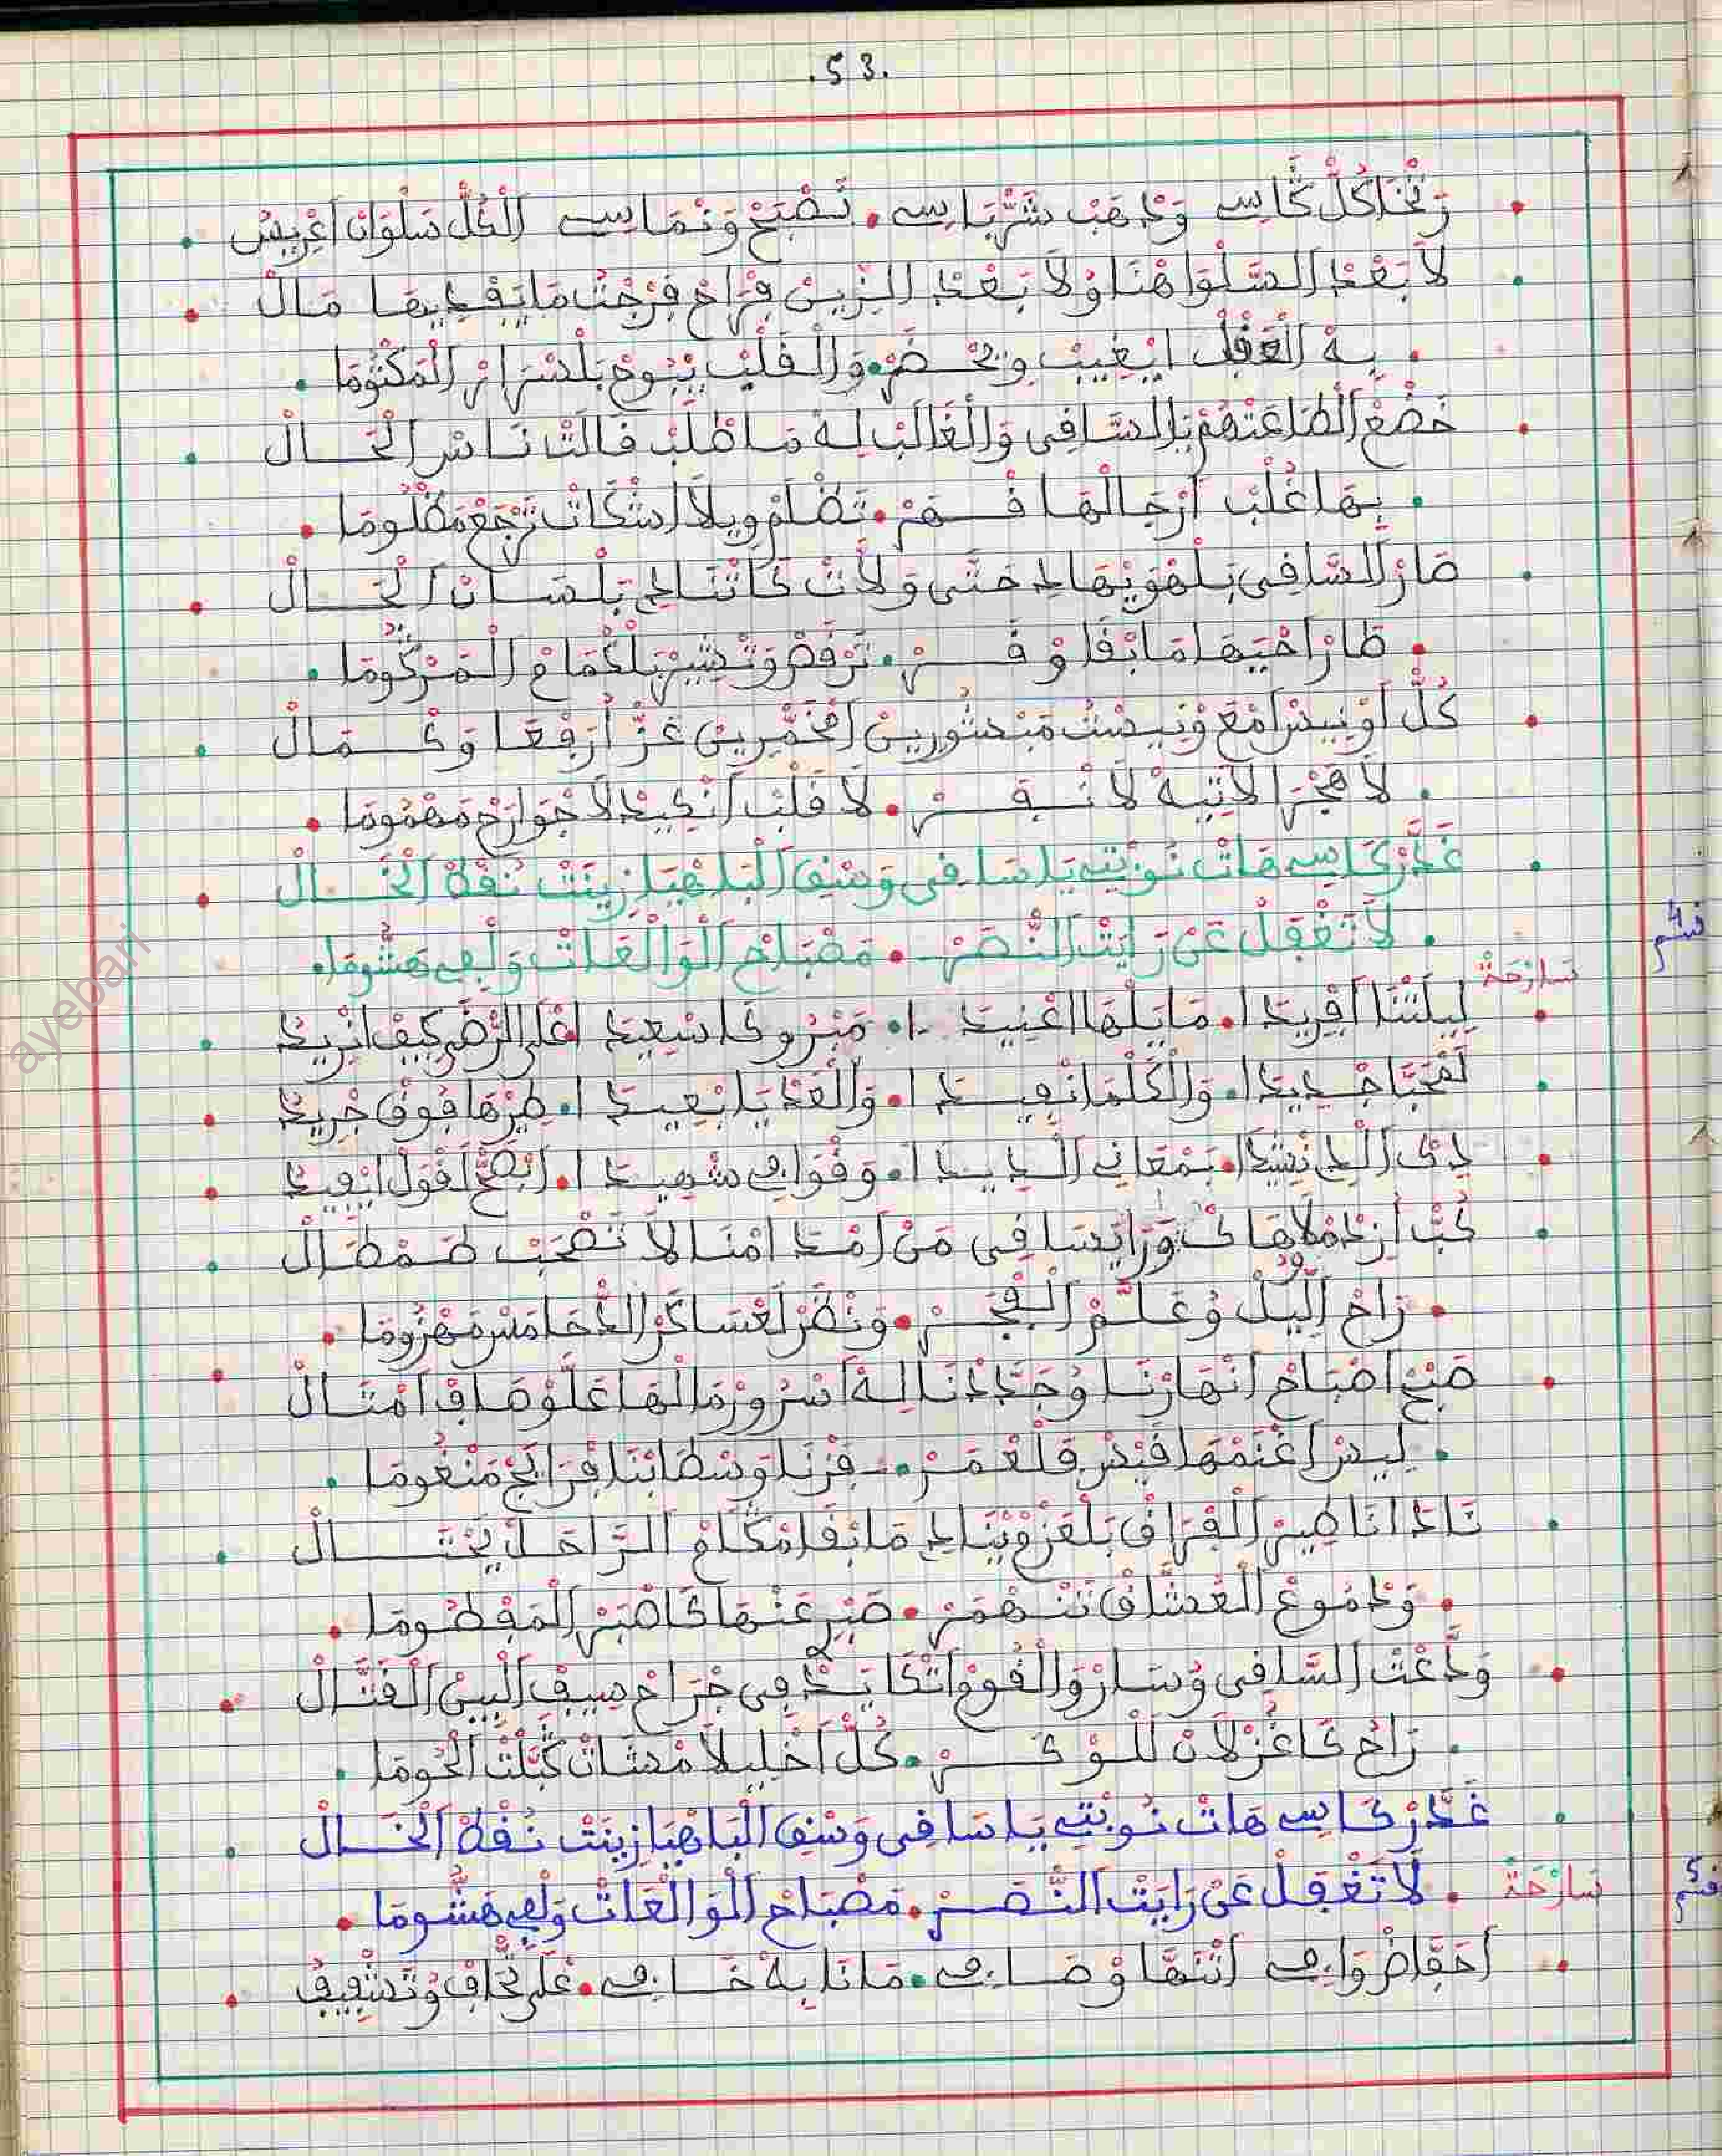 .53.
وَنْخَا كُلّْ كَاسِي وَدْهَبْ شَرْبَاسِي . نَصْبَحْ وَنْمَاسِي الْكُلّْ سَلْوَانْ اعْرِيسْ
لَا بَعْدْ السَّلْوَا هْنَا وُلَا بَعْدْ الزِّينْ فْرَاحْ فُرْجْتْ مَا يَفْدِيهَا مَالْ
بِهْ الْعْقَلْ ايْغِيبْ وِيحْضَرْ . وَالْقَلْبْ يْبُوحْ بَلْسْرَارْ الْمَكْتُومَا
خَضْعْ الطَاعَتْهُمْ يَا السَّاقِي وَالْغَالَبْ لِهْ مَا طْلَبْ قَالَتْ نَاسْ الْحَالْ
بِهَا غُلْبْ ارْجَالْهَا قْهَرْ . تَظْلَمْ وِيلَا اشْكَاتْ تَرْجَعْ مَظْلُومَا
صَارْ السَّاقِي بَلْهْوِيْهَادْ حَتَّى وَلَّاتْ كَاتْنَادِي بَلْسَانْ الْحَالْ
طَارْ احْيَيهَا مَا بْقَا وْقَرْ . تَرْقَصْ وَتْشِيرْ بَلْكْمَامْ الْمَرْكُومَا
كُلّْ اوْنِيسْ امْعَ وْنِيسْتْ مَبْسُورِينْ امْخَمّْرِينْ عَزّْ ارَفْعَا وَكْمَالْ
لَا هَجْرَا لَا تِيهْ لَا نْفَرْ . لَا قَلْبْ انْكِيدْ لَا جْوَارَحْ مَهْمُومَا
غَدَّرْ كَاسِي هَاتْ نُوبْتِي يَا سَاقِي وَسْقِي الْبَاهْيَا زِينَتْ نُقْطْ الْخَالْ
لَا تَغْفَلْ عَنْ رَايَتْ النَّصَرْ . مَصْبَاحْ الْوَالْعَاتْ وَلْفِي هَشُّومَا
قسم 4
سَارْحَةْ
لِيلَتْنَا افْرِيدَا . مَا يَلْهَا اعْنِيدَا . مَبْرُوكَا سْعِيدَا اعْلَى الرّْضَى كِيفْ انْرِيدْ
لَمْحَبَّا جْدِيدَا . وَالْكَلْمَا نْفِيدَا . وَالْعَدْيَا بْعِيدَا . طِيرْهَا فُوقْ جْرِيدْ
دِيكْ الِّي نْشِيدَا . بَمْعَانِي الْدِيدَا . وَقْوَافِي شْهِيدَا . ابْصَحّْ اقُولْ ايْفِيدْ
كُبّْ ازِدْ مْلَا هَاكْ وَرَا يَا سَاقِي مَنْ امْدَامْنَا لَا تَصْحَبْ طَمْطَالْ
رَاحْ اللِّيلْ وُعَلَّمْ الْفْجَرْ . وَنْظَرْ لَعْسَاكَرْ الدّْحَامَسْ مَهْزُومَا
صَبْحْ اصْبَاحْ انْهَارْنَا وُجَدَّدْنَا لِهْ اسْرُورْ مَا لْهَا عَلُّوهَا فْ امْثَالْ
لِيسْ اغْتَمْهَا قَيْسْ فَلْعْمَرْ . فَزْنَا وَسْطَابْنَا فْرَايَجْ مَنْغُومَا
نَادَانَا طِيرْ الْفْرَاقْ بَلْعَزْمْ يْنَادِي مَا بْقَا مْكَامْ الرَّاحَلْ يَخْتَالْ
وَدْمُوعْ الْعُشَّاقْ تَنْهْمَرْ . صَبْرِي عَنْهَا كَاصْبَرْ الْمَفْطُومَا
وَدَّعْتْ السَّاقِي وُسَارْ وَالْقُومْ اتْكَايَدْ فِي جْرَاحْ سِيفْ الْبِينْ الْقَتَّالْ
رَاحُ كَا غُزْلَانْ لَلْوْكَرْ . كُلّْ اخْلِيلَا مْشَاتْ كَبْلَتْ الْحُومَا
غَدَّرْ كَاسِي هَاتْ نُوبْتِي يَا سَاقِي وَسْقِي الْبَاهْيَا زِينَتْ نُقْطْ الْخَالْ
لَا تَغْفَلْ عَنْ رَايَتْ النَّصَرْ . مَصْبَاحْ الْوَالْعَاتْ وَلْفِي هَشُّومَا
سَارْحَةْ
قسم 5
احَفَّاضْ وَافِي اتْنَهَّا وْصَافِي . مَا نَا بِهْ خَافِي . عَلَى نْحَافْ وُتَشْفِيفْ
ayebari